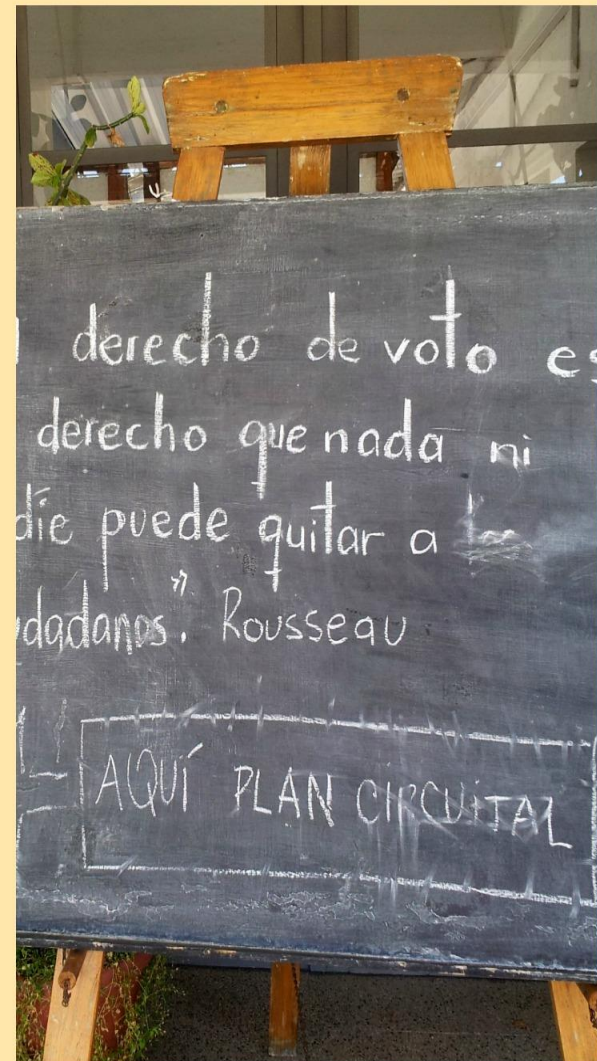 derecho de voto es
derecho que nada ni
die puede quitar a
dadanos". Rousseau
AQUÍ PLAN CIRCUITAL